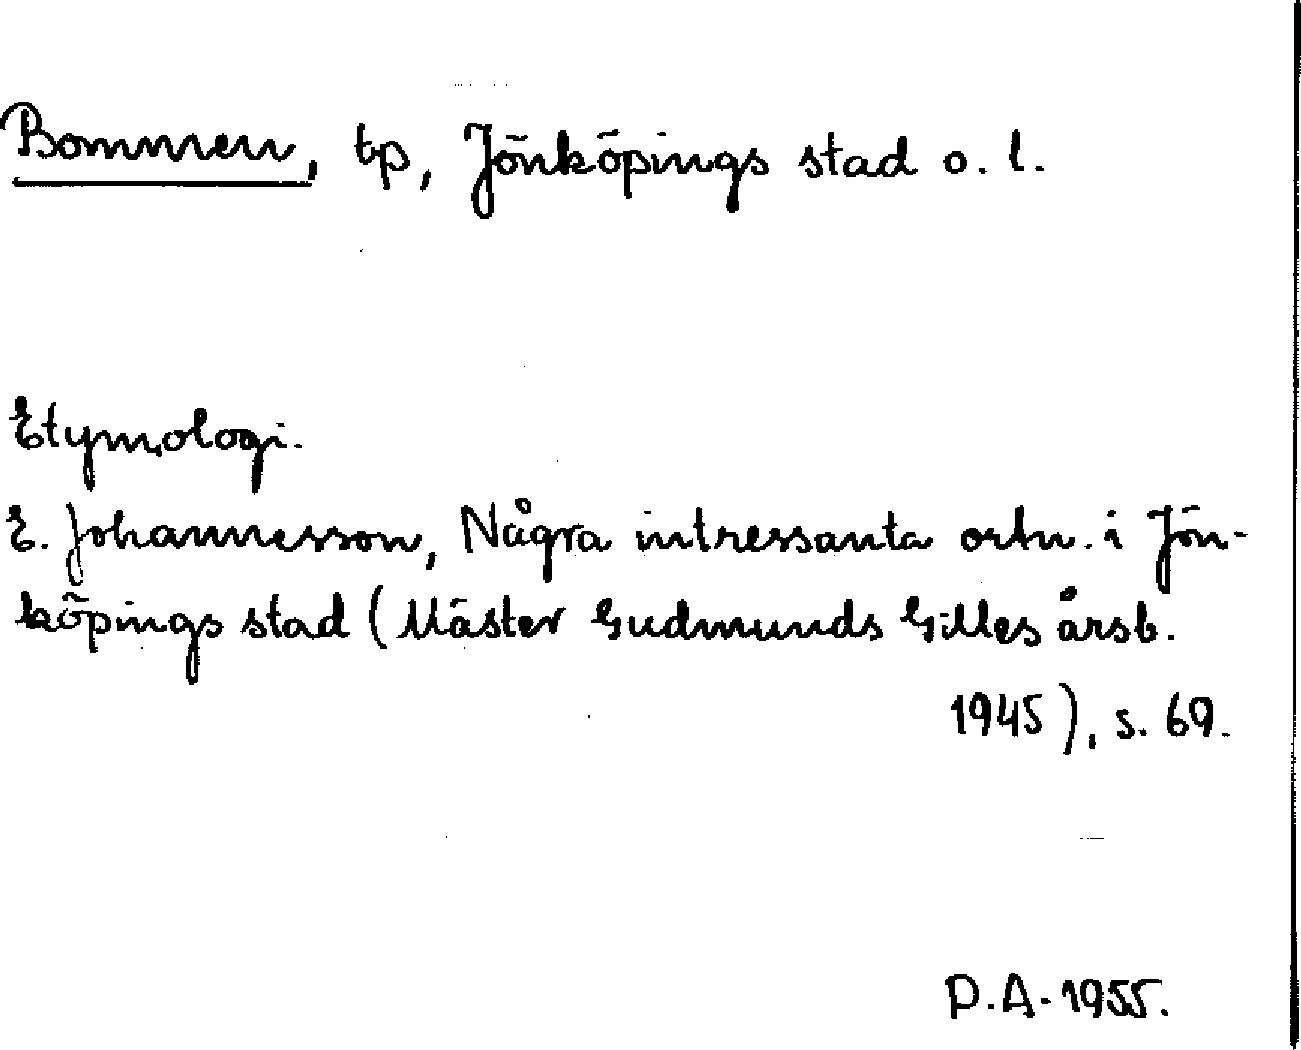 Bommen, tp, Jönköpings stad o. l.
Etymologi.
E. Johannesson, Några intressanta ortn. i Jön-
köpings stad (Mäster Gudmunds Gilles årsb.
1945), s. 69.
P.A. 1955.